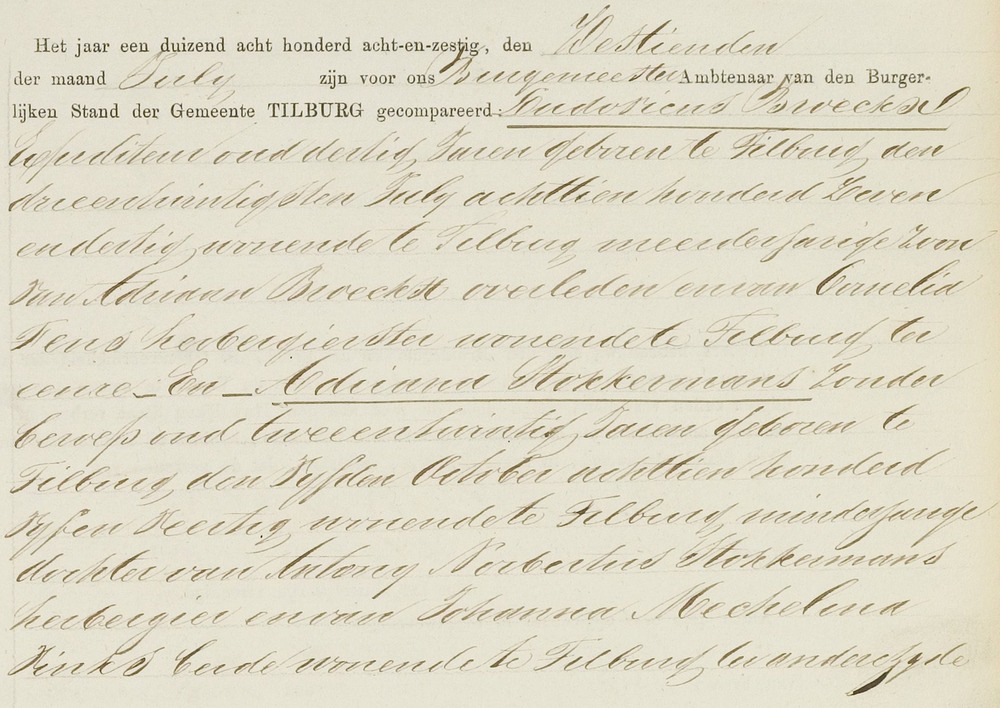 Het jaar een duizend acht honderd acht-en-zestig, den Zestienden
der maand July zijn voor ons Burgemeester Ambtenaar van den Burger-
lijken Stand der Gemeente TILBURG gecompareerd: Ludovicus Broeckx
Expediteur oud dertig Jaren geboren te Tilburg den
drieentwintigsten July achttien honderd Zeven
en dertig wonende te Tilburg meerderjarige Zoon
van Adriaan Broeckx overleden en van Cornelia
Fens herbergierster wonende te Tilburg ter
eenre_ En _ Adriana Stokkermans Zonder
beroep oud tweeentwintig Jaren geboren te
Tilburg den Vyfden October achttien honderd
Vyfen Veertig wonende te Tilburg minderjarige
dochter van Antony Norbertus Stokkermans
herbergier en van Johanna Mechelina
Vinks beide wonende te Tilburg ter anderezyde